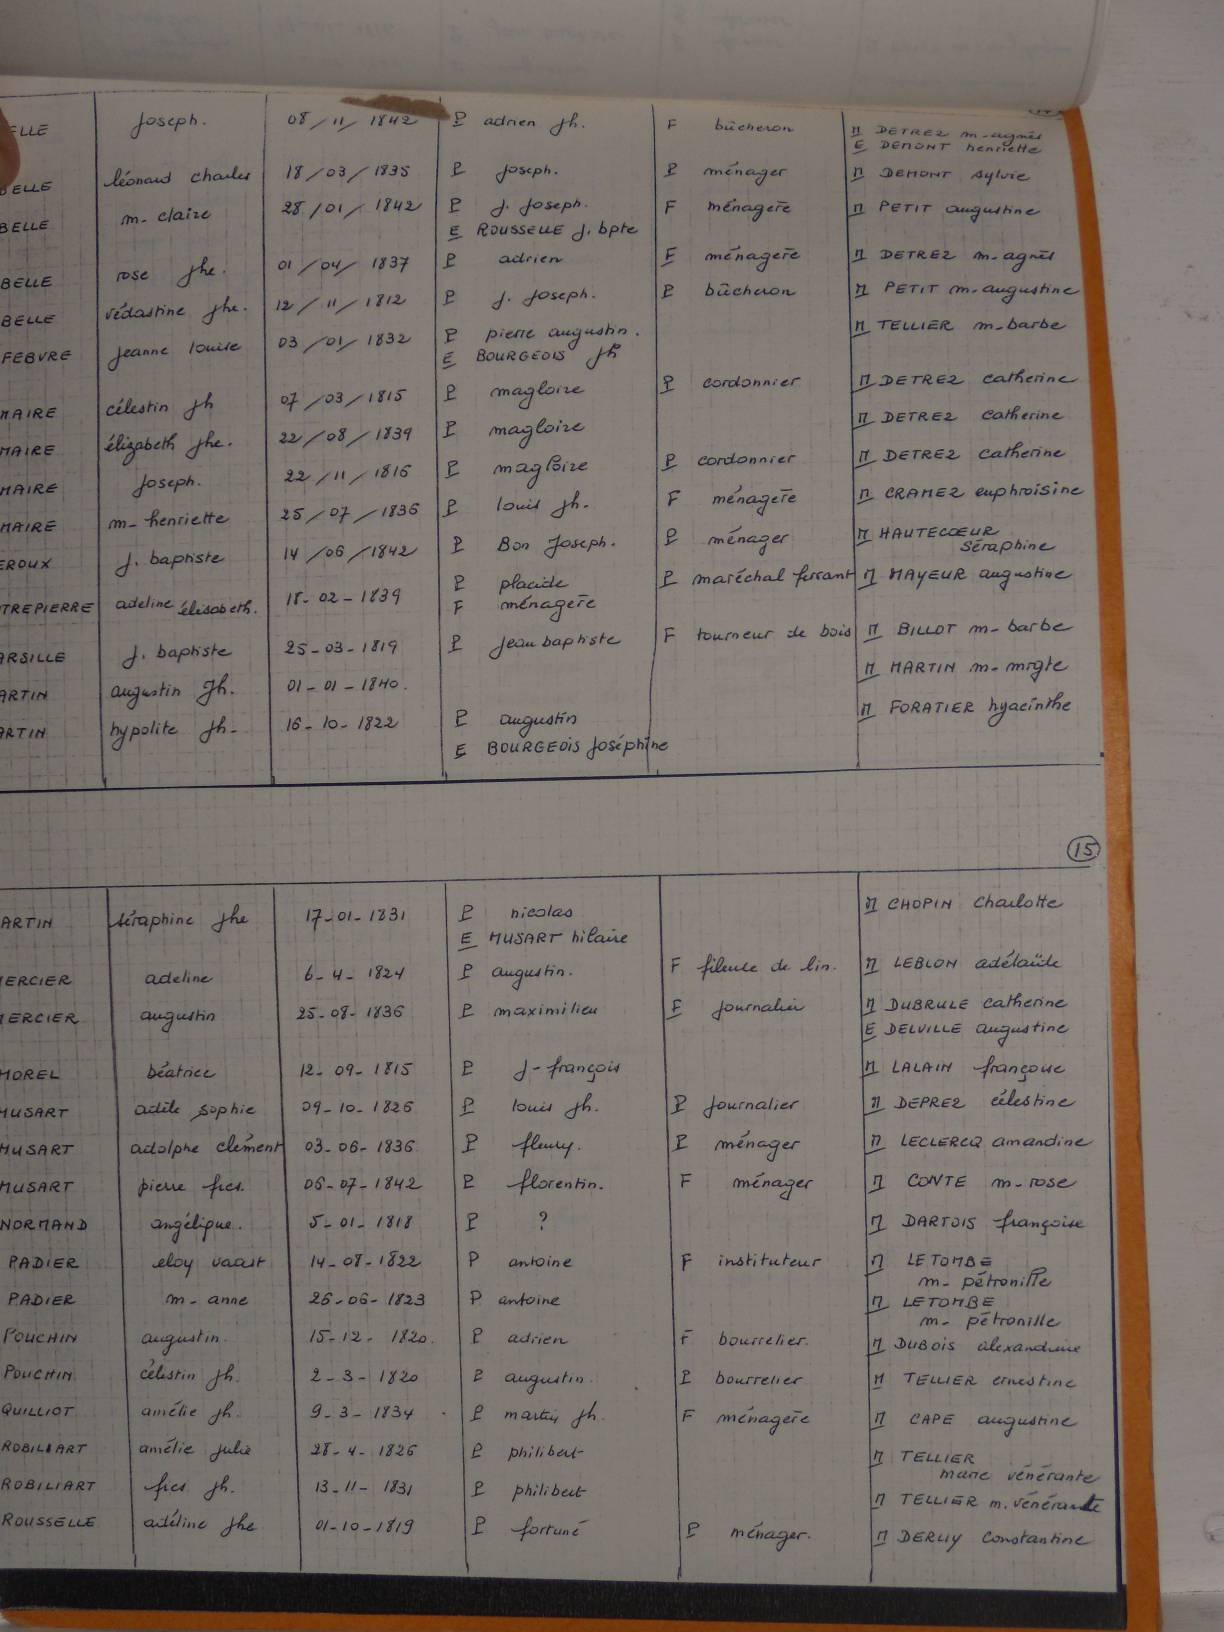 ELLE joseph. 08/11/1842 P adrien jh. F bûcheron M DETREZ m-agnès
E DEMONT henriette
BELLE léonard charles 18/03/1835 P joseph. P ménager M DEMONT sylvie
BELLE m-claire 28/01/1842 P j. joseph. F ménagère M PETIT augustine
E ROUSSELLE j. bpte
BELLE rose jhe. 01/04/1837 P adrien F ménagère M DETREZ m-agnès
BELLE védastine jhe. 12/11/1812 P j. joseph. P bûcheron M PETIT m-augustine
FEBVRE jeanne louise 03/01/1832 P pierre augustin. M TELLIER m-barbe
E BOURGEOIS jh
MAIRE célestin jh 07/03/1815 P magloire P cordonnier M DETREZ catherine
MAIRE élizabeth jhe. 22/08/1839 P magloire M DETREZ catherine
MAIRE joseph. 22/11/1816 P magloire P cordonnier M DETREZ catherine
MAIRE m-henriette 25/07/1836 P louis jh. F ménagère M CRAMEZ euphroisine
EROUX j. baptiste 14/06/1842 P Bon joseph. P ménager M HAUTECŒUR
séraphine
TREPIERRE adeline élisabeth. 18-02-1839 P placide P maréchal ferrant M MAYEUR augustine
F ménagère
ARSILLE j. baptiste 25-03-1819 P jean baptiste F tourneur de bois M BILLOT m-barbe
ARTIN augustin jh. 01-01-1840. M MARTIN m-mrgte
ARTIN hypolite jh- 16-10-1822 P augustin M FORATIER hyacinthe
E BOURGEOIS joséphine
15
ARTIN séraphine jhe 17-01-1831 P nicolas M CHOPIN charlotte
E MUSART hilaire
MERCIER adeline 6-4-1824 P augustin. F fileuse de lin. M LEBLON adélaïde
MERCIER augustin 25-08-1836 P maximilien F journalier M DUBRULE catherine
E DELVILLE augustine
MOREL béatrice 12-09-1815 P j-françois M LALAIN françoise
MUSART adèle sophie 09-10-1826 P louis jh. P journalier M DEPREZ célestine
MUSART adolphe clément 03-06-1836 P fleury. P ménager M LECLERCQ amandine
MUSART pierre fçcs. 06-07-1842 P florentin. F ménager M CONTE m-rose
NORMAND angélique. 5-01-1818 P ? M DARTOIS françoise
PADIER eloy vaast 14-08-1822 P antoine F instituteur M LETOMBE
m-pétronille
PADIER m-anne 26-06-1823 P antoine M LETOMBE
m-pétronille
POUCHIN augustin. 15-12-1820. P adrien F bourrelier. M DUBOIS alexandrine
POUCHIN célestin jh. 2-3-1820 P augustin. P bourrelier M TELLIER ernestine
QUILLIOT amélie jh. 9-3-1834 P martin jh. F ménagère M CAPE augustine
ROBILIART amélie julie 28-4-1826 P philibert M TELLIER
marie vénérante
ROBILIART fçcs jh. 13-11-1831 P philibert M TELLIER m. vénérante
ROUSSELLE adéline jhe 01-10-1819 P fortuné P ménager. M DERUY constantine